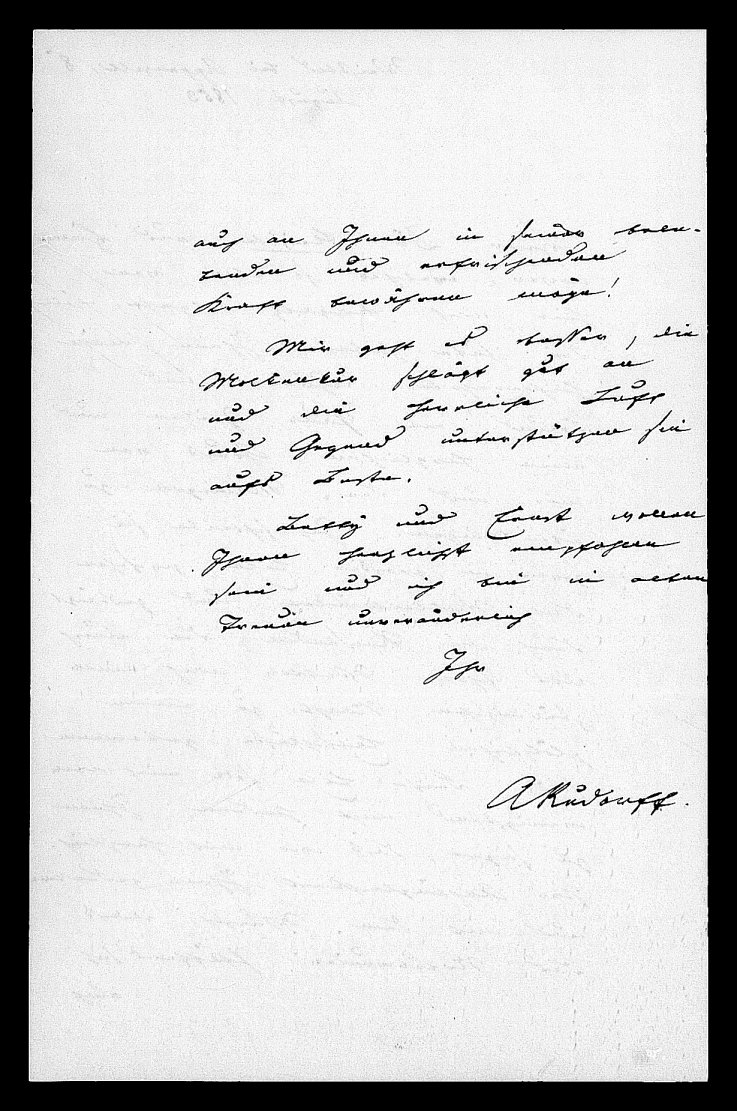 auch an Ihnen in seiner bele-
benden und erfrischenden
Kraft bewähren möge!
Mir geht es besser, die
Molkenkur schlägt gut an
und die herrliche Luft
und Gegend unterstützen sie
aufs Beste.
Betty und Ernst wollen
Ihnen herzlichst empfohlen
sein und ich bin in alter
Treue unveränderlich
Ihr
ARudorff.